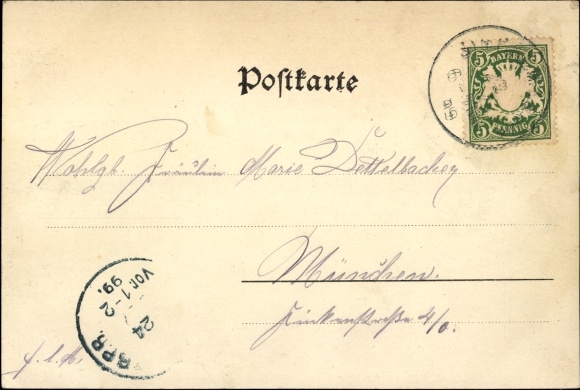 Postkarte
5 BAYERN 5
5 PFENNIG 5
Wohlgb. Fräulein Marie Dettelbacher
München.
4/0.
B.P.B.
24
Vor. 1-2
99.